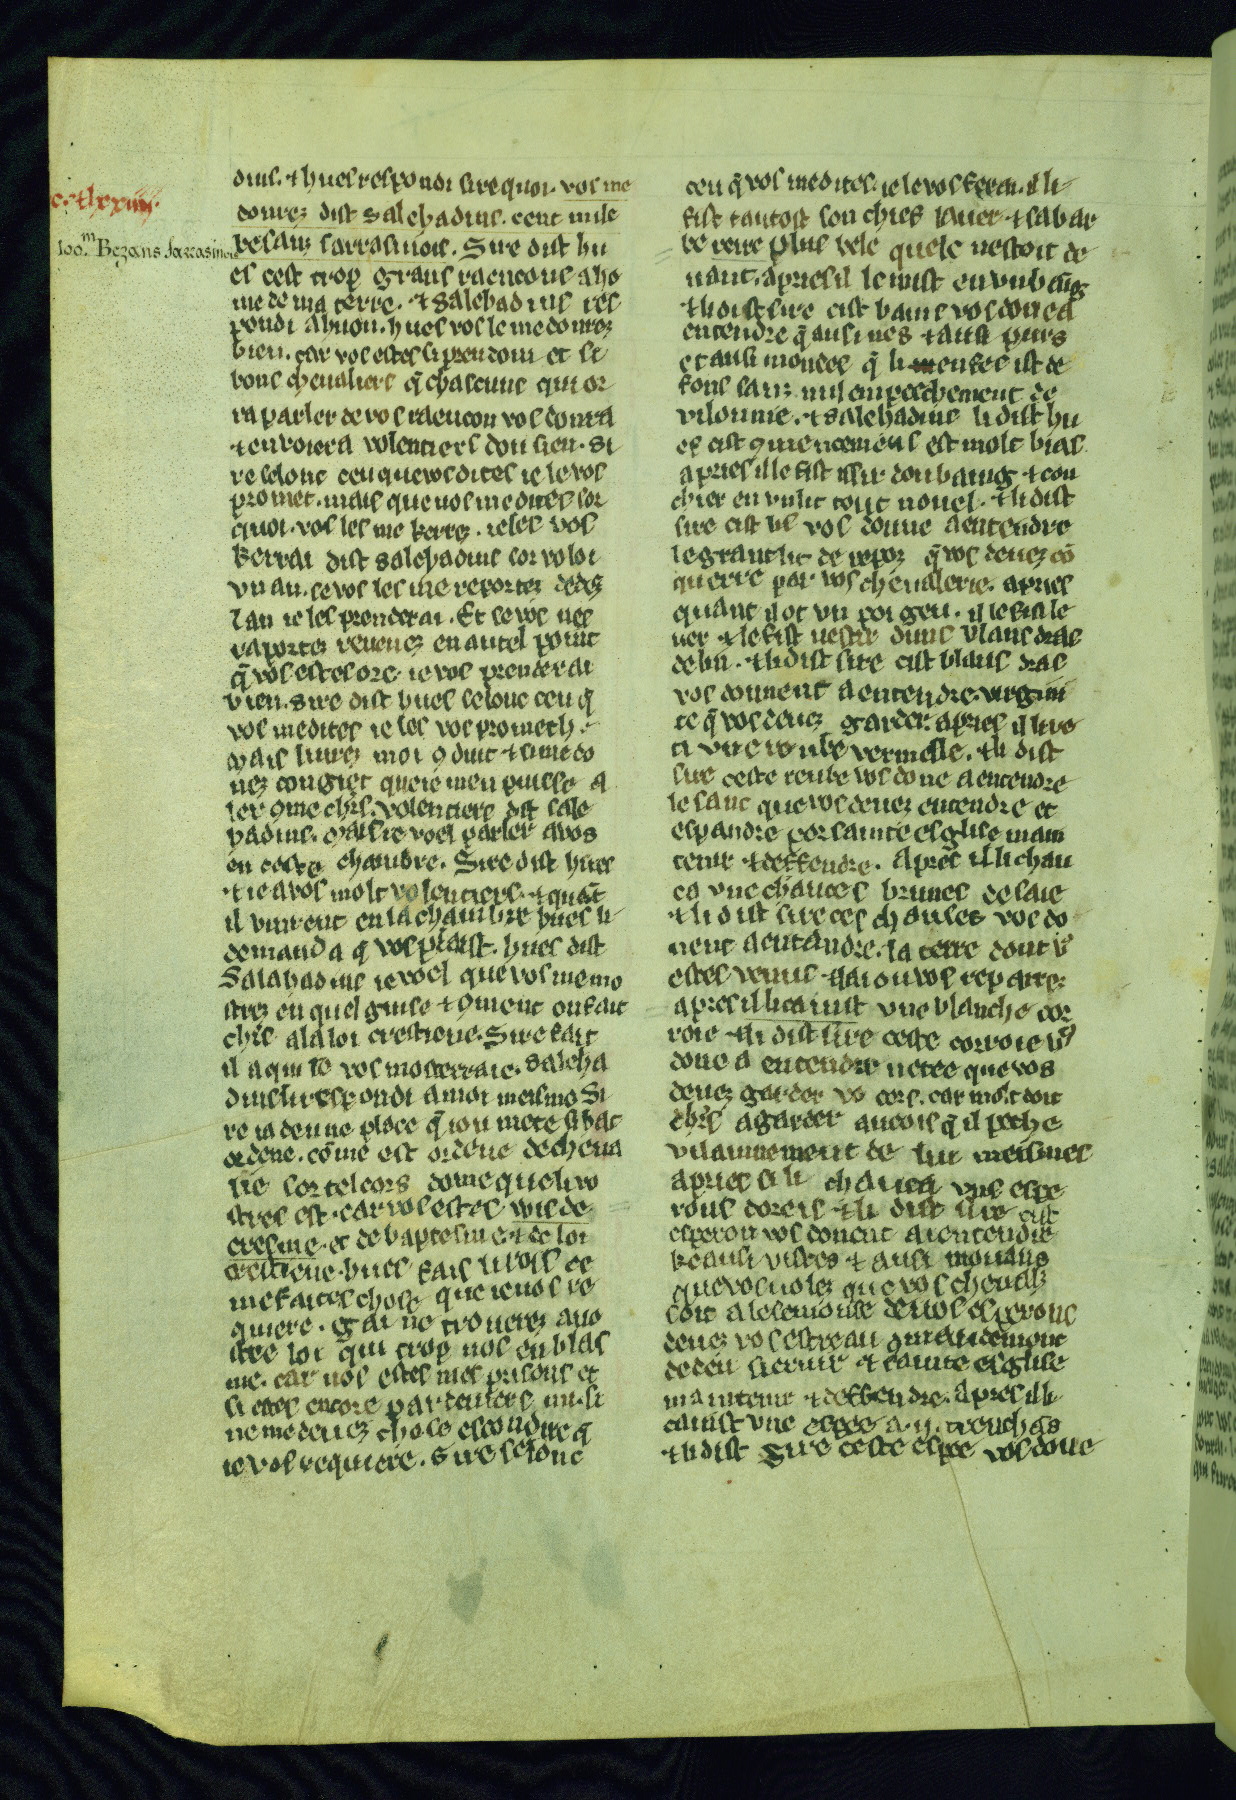 cc.lxxiiij.
100.m Bezans sarrasinois
dins. ⁊ hues respondi sire quoi. vos me
donrez dist salehadins. cent mile
besanz sarrasinois. Sire dist hu
es cest trop grans raencons a ho
me de ma terre. ⁊ salehadins res
pondi a huon. hues vos le me donrez
bien. car vos estes si preudom et si
bons chevaliers q̃ chascuns qui or
ra parler de vos raencon vos donra
⁊ envoiera volentiers don sien. Si
re selonc ceu que vos dites ie le vos
promet. mais que vos me dites sor
quoi. vos les me kerrez. ie les vos
kerrai dist salehadins sor vo loi
vn an. se vos les me reportez dedez
lan ie les prenderai. Et se vos nes
raportez revenez en autel point
q̃ vos estes ore. ie vos prenderai
bien. sire dist hues selonc ceu q̃
vos me dites ie les vos prometh.
mais livrez moi 9duit ⁊ si me do
nez congiet que ie men puisse a
ler 9me ch̃rs. volentiers dist sale
hadins. mais ie voel parler a vos
en ceste chambre. Sire dist hues
⁊ ie a vos molt volentiers. ⁊ quãt
il vinrent en la chambre hues li
demanda q̃ vos plaist. hues dist
Salahadins ie voel que vos me mo
strez en quel guise ⁊ 9ment on fait
ch̃rs a la loi crestiene. Sire fait
il a qui le vos mosterraie. saleha
dins li respondi a moi meismo Si
re ia deu ne place q̃ iou mete si hat
ordene. cõme est ordene de cheva
lie sor tel cors dome que li vo
stres est. car vos estes wis de
cresme. et de baptesme ⁊ de loi
crestiene. hues fais li vois ce
me faites chose que ie vos re
quiere. gai ne troverez a vo
stre loi qui trop vos en blas
me. car vos estes mes prisons et
si estes encore par deviers mi. si
ne me devez chose escondire q̃
ie vos requiere. Sire selonc
ceu q̃ vos me dites. ie le vos ferai. il li
fist tantost son chief laver. ⁊ sa bar
be reire plus bele quele nestoit de
vant. apries il le mist en vn baig
⁊ li dist sire cist bains vos done a
entendre q̃ ausi nes ⁊ ausi purs
et ausi mondes q̃ li enfes ist de
fons sanz nul enpeechement de
vilounie. ⁊ salehadins li dist hu
es cist 9mencemens est molt bias
apries il le fist issir don baing. ⁊ cou
chier en vn lit tout novel. ⁊ li dist
sire cist lis vos donne a entendre
le grant lit de repoz q̃ vos devez cõ
querre par vos chevallerie. apries
quant il ot vn poi geu. il le fist le
ver ⁊ le fist vestir duns blans dras
de lin. ⁊ li dist sire cist blans dras
vos donnent a entendre. virgini
te q̃ vos devez garder. apries il li ve
ti vne reube vermelle. ⁊ li dist
sire ceste reube vos done a entendre
le sanc que vos devez entendre et
espandre por sainte esglise main
tenir ⁊ deffendre. Apres il li chau
ca vne chauces brunes de saie
⁊ li dist sire ces chauses vos do
nent a entandre. la terre dont v9
estes venus. ⁊ la iou vos reparrez
apres il li cainst vne blanche cor
roie ⁊ li dist sire ceste corroie v9
done a entendre netee que vos
devez garder vo cors. car molt doit
ch̃rs a garder ancois q̃ il peche
vilainnement de lui meismes
apries si li chauca vns espe
rons doreis ⁊ li dist sire cist
esperon vos donent a entendre
ke ausi vistes ⁊ ausi movans
que vos volez que vos chevalz
soit a le semonse de vos esperons
devez vos estre au 9mandement
de deu siervir ⁊ sainte esglise
maintenir ⁊ deffendre. apres il li
cainst vne espee a .ij. trenchãs
⁊ li dist Sire ceste espee vos done